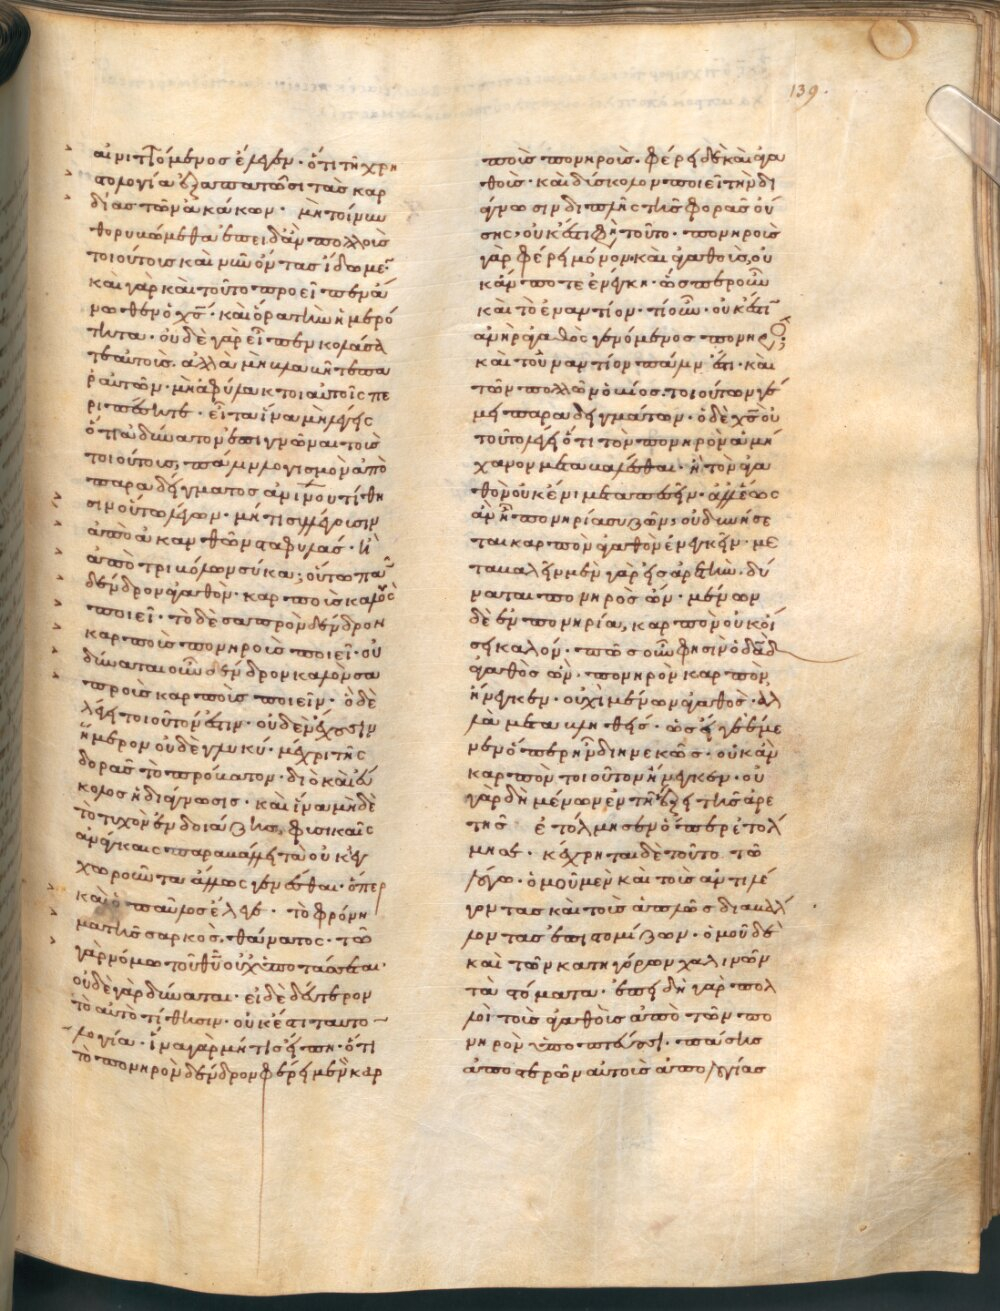 139.
αἰνιττόμενος ἔλεγεν· ὅτι τῆ χρη
στολογία ἐξαπατῶσι τὰς καρ
δίας τῶν ἀκάκων· μὴ τοίνυν
θορυβώμεθα ἐπειδὰν πολλοὺς
τοιούτους καὶ νῦν ὄντας ἴδωμε͂
καὶ γὰρ καὶ τοῦτο προεῖπεν ἄ
νωθεν ὁ χ̅ς̅· καὶ ὅρα τὴν ἡμερό
τητα· οὐδὲ γὰρ εἶπεν κολάσα
τε αὐτούς. ἀλλὰ μὴ βλαβῆτε πα
ρ αὐτῶν· μὴ ἀφύλακτοι αὐτοῖς πε
ριπέσητε· εἶτα ἵνα μὴ λέγης
ὅτι ἀδύνατον ἐπιγνῶναι τοὺς
τοιούτους, πάλιν λογισμὸν ἀπὸ
παραδείγματος ἀν̅ι̅νου τίθη
σιν οὕτω λέγων· μή τι συλλέγουσιν
ἀπὸ ἀκανθῶν σταφυλάς· ἢ
ἀπὸ τριβόλων σύκα; οὕτω πᾶ͂
δένδρον ἀγαθὸν· καρποὺς καλοὺς
ποιεῖ· τὸ δὲ σαπρὸν δένδρον
καρποὺς πονηροὺς ποιεῖ· οὐ
δύναται οὖν δένδρον καλὸν σα
προὺς καρποὺς ποιεῖν· ὃ δὲ
λέγει τοιοῦτόν ἐστιν· οὐδὲν ἔχουσιν
ἥμερον οὐδὲ γλυκύ· μέχρι τῆς
δορᾶς τὸ πρόβατον· διὸ καὶ εὔ
κολος ἡ διάγνωσις· καὶ ἵνα μηδὲ
τὸ τυχὸν ἐνδοιάζης, φυσικαῖς
ἀνάγκαις παραβάλλει τὰ οὐκ ἐγ
χωροῦντα ἄλλως γενέσθαι· ὅπερ
καὶ ὁ παῦλος ἔλεγε· τὸ φρόνη
μα τῆς σαρκὸς. θάνατος· τῶ
γὰρ νόμω τοῦ θ̅υ̅ οὐχ ὑποτάσσεται·
οὐδὲ γὰρ δύναται· εἰ δὲ δεύτερον
τὸ αὐτὸ τίθησιν· οὐκ ἔστι ταυτο
λογία· ἵνα γὰρ μή τις εἴπη· ὅτι
τὸ πονηρὸν δένδρον φέρει μὲν καρ
ποὺς πονηρούς. φέρει δὲ καὶ ἀγα
θούς· καὶ δύσκολον ποιεῖ τὴν δι
άγνωσιν διπλῆς τῆς φορᾶς οὔ
σης, οὐκ ἔστι φη τοῦτο· πονηροὺς
γὰρ φέρει μόνον, καὶ ἀγαθοὺς, οὐ
κ ἄν ποτε ἐνέγκη· ὥσπερ οὖν
καὶ τὸ ἐναντίον· τί οὖν· οὐκ ἔστῖ
ἀνὴρ ἀγαθὸς γενόμενος πονηρός;
καὶ τοὐναντίον πάλιν ἔστι· καὶ
τῶν πολλῶν ὁ βίος. τοιούτων γέ
μει παραδειγμάτων· ὁ δὲ χ̅ς̅ οὐ
τοῦτο λέγει ὅτι τὸν πονηρὸν ἀμή
χανον μεταβαλέσθαι· ἢ τὸν ἀγα
θὸν οὐκ ἔνι μεταπεσεῖν· ἀλλ ἕως
ἂν ῆ πονηρία συζῶν, οὐ δυνήσε
ται καρπὸν ἀγαθὸν ἐνεγκεῖν· με
ταβαλεῖν μὲν γὰρ εἰς ἀρετὴν. δύ
ναται πονηρὸς ὤν· μένων
δὲ ἐν πονηρία, καρπὸν οὐκ οἴ
σει καλόν· πῶς οὖν φησὶν ὁ δα̅δ̅
ἀγαθὸς ὢν. πονηρὸν καρπὸν
ἤνεγκεν· οὐχὶ μένων ἀγαθὸς· ἀλ
λὰ μεταβληθείς· ὡς εἴγε ἔμε
νεν ὅπερ ἦν διηνεκῶς· οὐκ ἂν
καρπὸν τοιοῦτον ἤνεγκεν· οὐ
γὰρ δὴ μένων ἐν τῆ ἕξει τῆς ἀρε
τῆς ἐτόλμησεν ὅπερ ἐτόλ
μησε· κέχρηται δὲ τοῦτο τῶ
λόγω· ὁμοῦ μὲν καὶ τοὺς ἀντιλέ
γοντας καὶ τοὺς ἁπλῶς διαβάλ
λοντας ἐπιστομίζων· ὁμοῦ δὲ
καὶ τῶν κατηγόρων χαλινῶν
τὰ στόματα· ἐπειδὴ γὰρ πολ
λοὶ τοὺς ἀγαθοὺς ἀπὸ τῶν πο
νηρῶν ὑποπτεύουσι. πάσης
ἀποστερῶν αὐτοὺς ἀπολογίας